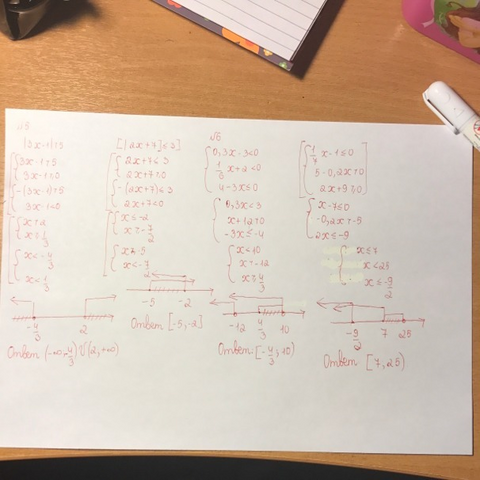 √5
|3x-1|>5
{3x-1>5
3x-1≥0
{-(3x-1)>5
3x-1<0
{x>2
x≥1/3
{x<-4/3
x<1/3
-4/3 2
Ответ (-∞,-4/3)U(2,+∞)
[|2x+7|≤3]
{2x+7≤3
2x+7≥0
{-(2x+7)≤3
2x+7<0
{x≤-2
x≥-7/2
{x≥-5
x<-7/2
-5 -2
Ответ [-5,-2]
√6
{0,3x-3<0
1/6x+2<0
4-3x≤0
{0,3x<3
x+12<0
-3x≤-4
{x<10
x>-12
x≥4/3
-12 4/3 10
Ответ [-4/3,10)
{1/7x-1≤0
5-0,2x>0
2x+9≥0
{x-7≤0
-0,2x>-5
2x≤-9
{x≤7
x<25
x≤-9/2
-9/2 7 25
Ответ [7,25)